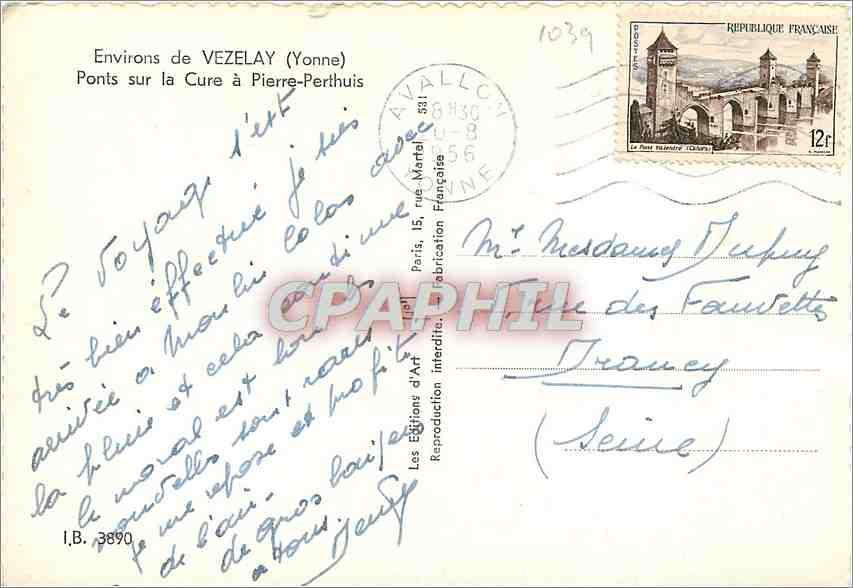 Environs de VEZELAY (Yonne)
Ponts sur la Cure à Pierre-Perthuis
1039
RÉPUBLIQUE FRANÇAISE
POSTES
Le Pont Valentré (Cahors)
12f
AVALLON
8H30
-8
1956
YONNE
Le Voyage s'est
très bien effectué je suis
arrivée a Moulin Colas avec
la pluie et cela continue
le moral est bon les
nouvelles sont rares
je me repose et profite
de l'air.
de gros baisers
a tous.
Mr Mesdames Dupuy
rue des Fauvettes
Drancy
(Seine)
Les Editions d'Art Paris, 15, rue Martel 531
Reproduction interdite. Fabrication Française
I.B. 3890
CPAPHIL